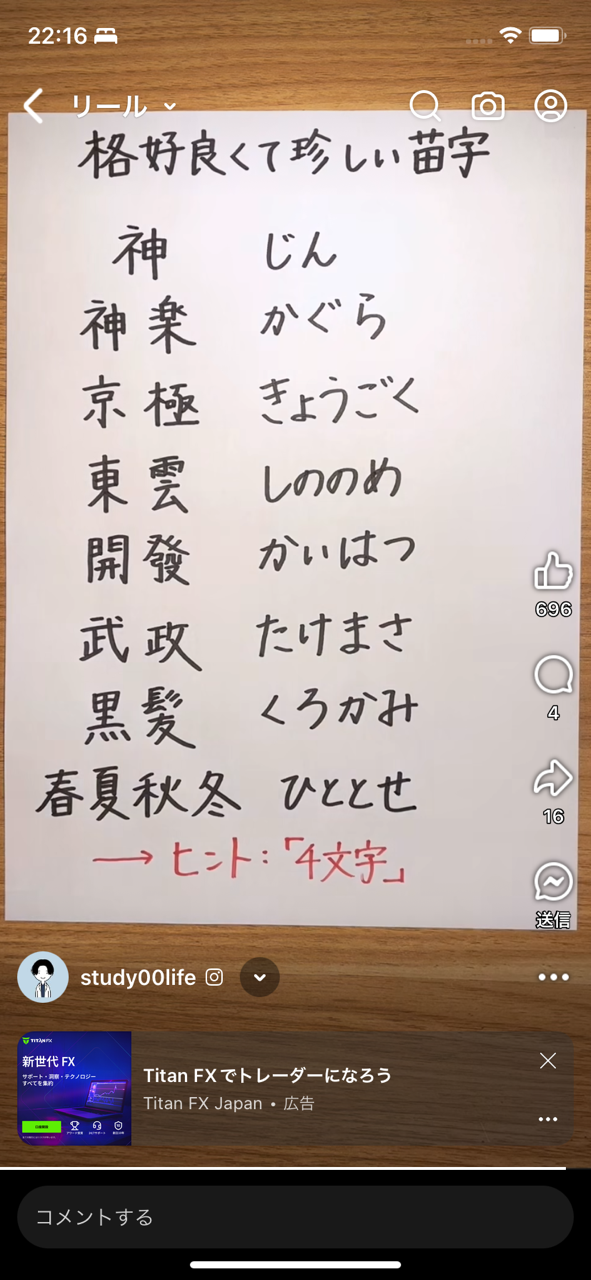 22:16
リール
格好良くて珍しい苗字
神 じん
神楽 かぐら
京極 きょうごく
東雲 しののめ
開發 かいはつ
武政 たけまさ
黒髪 くろかみ
春夏秋冬 ひととせ
→ ヒント:「4文字」
696
4
16
送信
study00life
TITAN FX
新世代 FX
サポート・洞察・テクノロジー
すべてを集約
Titan FXでトレーダーになろう
Titan FX Japan • 広告
コメントする